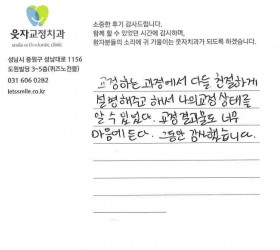 웃자교정치과
smile orthodontic clinic
성남시 중원구 성남대로 1156
도원빌딩 3~5층(퀴즈노건물)
031 606 0282
letssmile.co.kr
소중한 후기 감사드립니다.
함께 할 수 있었던 시간에 감사하며,
환자분들의 소리에 귀 기울이는 웃자치과가 되도록 하겠습니다.
교정하는 과정에서 다들 친절하게
설명해주고 해서 나의교정 상태를
알 수 있었다. 교정 결과물도 너무
마음에든다. 그동안 감사했습니다.